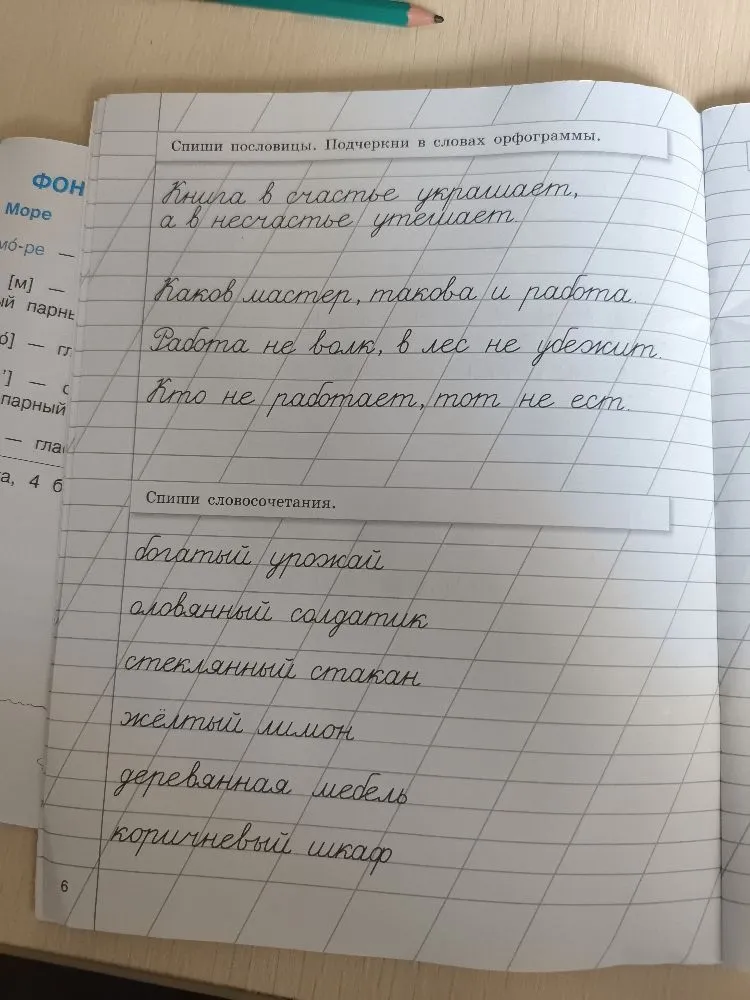 Спиши пословицы. Подчеркни в словах орфограммы.
Книга в счастье украшает,
а в несчастье утешает.
Каков мастер, такова и работа.
Работа не волк, в лес не убежит.
Кто не работает, тот не ест.
Спиши словосочетания.
богатый урожай
оловянный солдатик
стеклянный стакан
жёлтый лимон
деревянная мебель
коричневый шкаф
6
ФОН
Море
мо́-ре —
[м] —
ый парнь
о́] — гл
’] — с
парный
— глас
а, 4 б